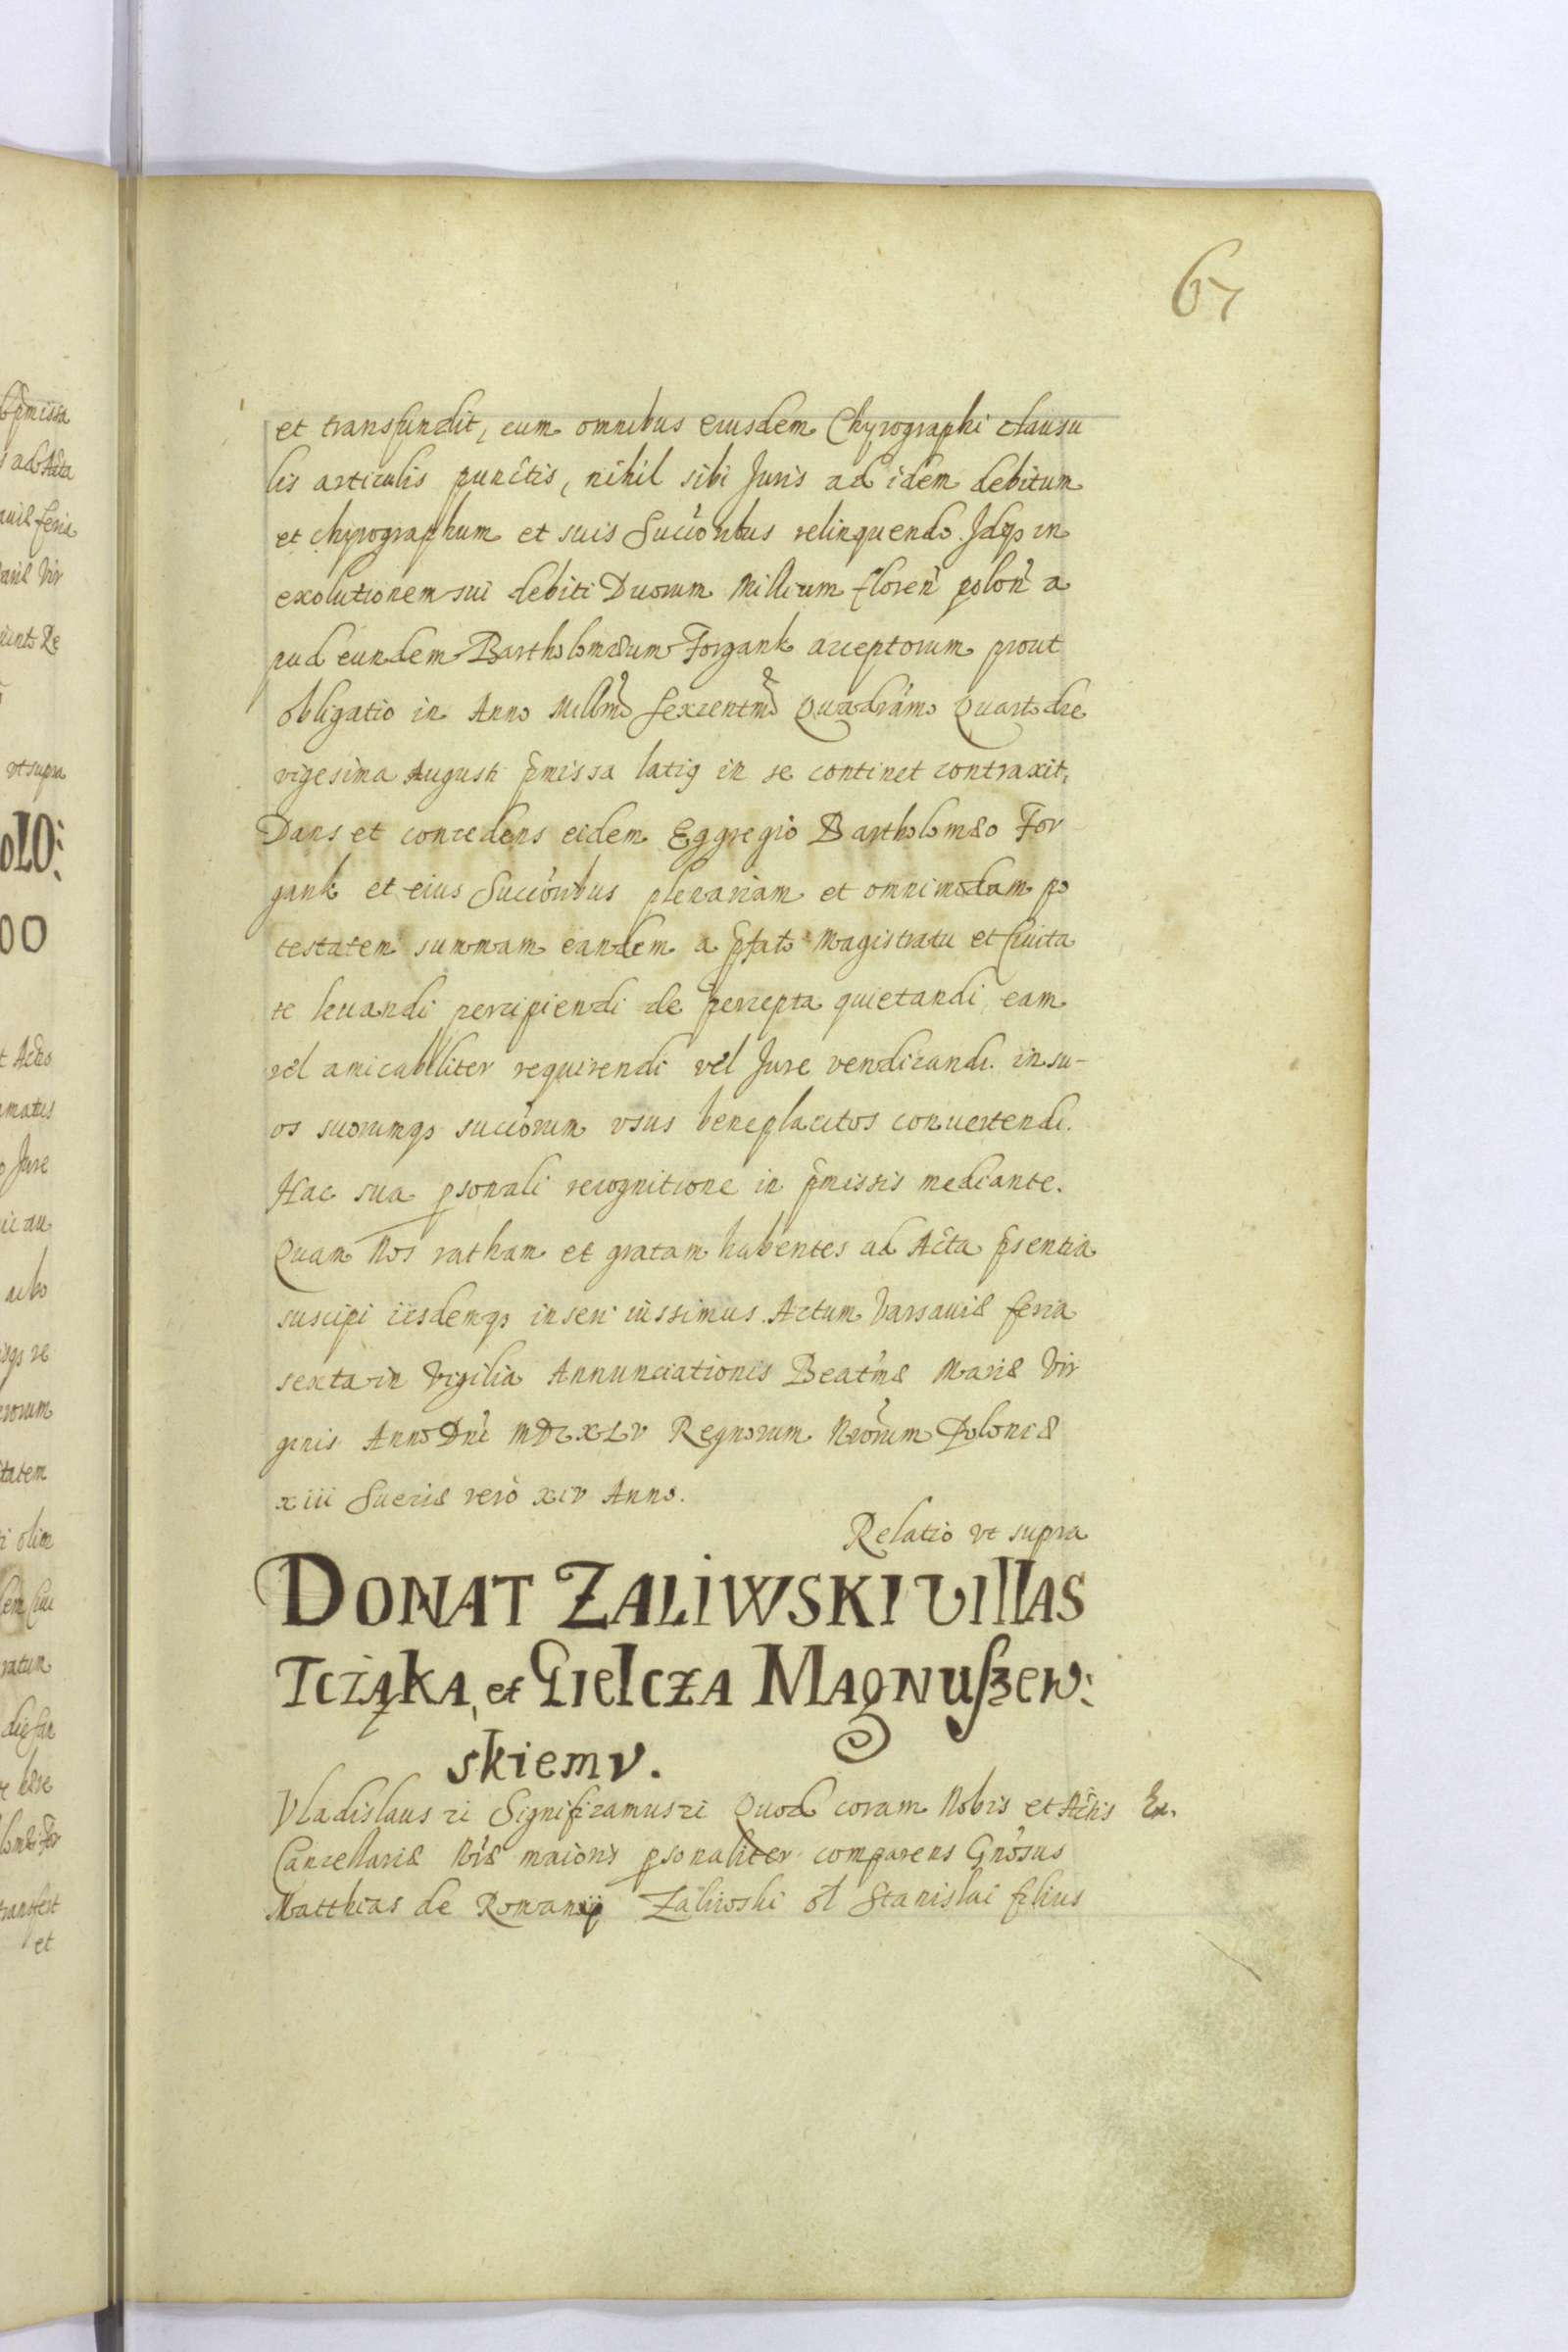 67
et transfundit, cum omnibus eiusdem Chyrographi clausu
lis articulis punctis, nihil sibi Juris ad idem debitum
et chyrographum et suis Succoribus relinquendo. Idqȝ in
exolutionem sui debiti Duorum Millium floren polon a
pud eundem Bartholomæum Forgank acceptorum prout
obligatio in Anno Millmo sexcentmo Quadrámo Quarto die
vigesima Augusti pmissa latiꝯ in se continet contraxit,
Dans et concedens eidem Eggregio Bartholomæo For
gank et eius Succoribus plenariam et omnimodam po
testatem summam eandem a pfato Magistratu et Ciuita
te leuandi percipiendi de percepta quietandi, eam
vel amicabiliter requirendi vel Jure vendicandi. in su-
os suorumqȝ succorum vsus beneplacitos conuertendi.
Hac sua psonali recognitione in pmissis mediante.
Quam Nos ratham et gratam habentes ad Acta psentia
suscipi iisdemqȝ inseri iussimus. Actum Varsauiæ feria
sexta in Vigilia Annunciationis Beatmæ Mariæ Vir
ginis Anno Dni MDCXLV Regnorum Nrorum Poloniæ
xiii Sueciæ vero xiv Anno.
Relatio vt supra
DONAT ZALIWSKI VIllAS
TCZĄKA, et GIelczA MAGNUſzew:
skiemv.
Vladislaus zc Significamus zc Quod coram Nobis et Actis Ex.
Cancellariæ Nræ maioris psonaliter comparens Gnosus
Matthias de Zaliwski ol Stanislai filius
pmissa
ad Acta
feria
Vir
vt supra
OLO:
00
Jure
re
tatem
olim
ratum
transfert
et